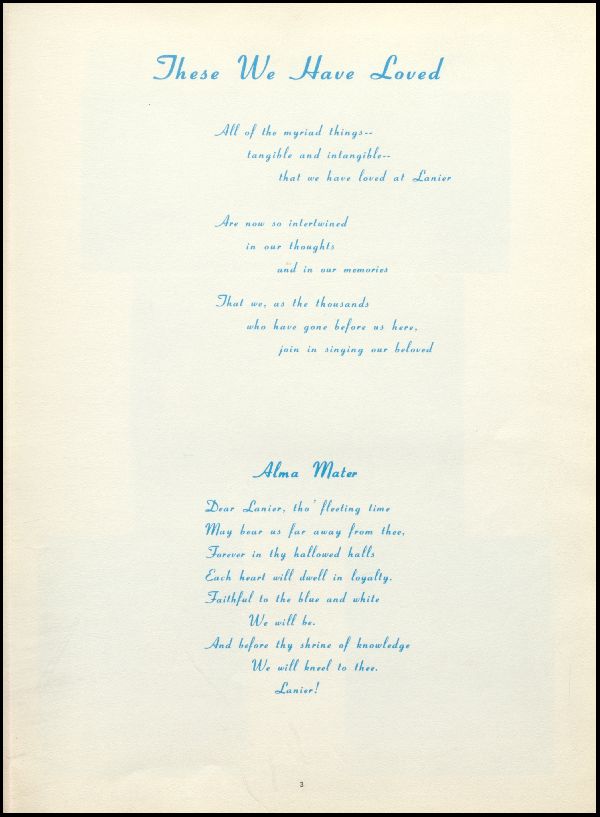 These We Have Loved
All of the myriad things--
tangible and intangible--
that we have loved at Lanier
Are now so intertwined
in our thoughts
and in our memories
That we, as the thousands
who have gone before us here,
join in singing our beloved
Alma Mater
Dear Lanier, tho' fleeting time
May bear us far away from thee,
Forever in thy hallowed halls
Each heart will dwell in loyalty.
Faithful to the blue and white
We will be.
And before thy shrine of knowledge
We will kneel to thee.
Lanier!
3